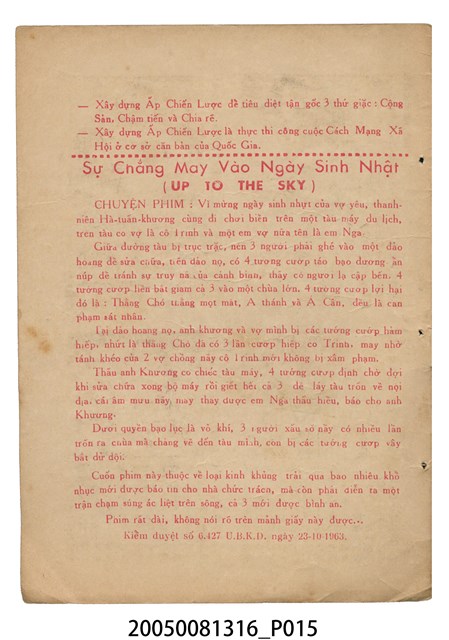 — Xây dựng Ấp Chiến Lược để tiêu diệt tận gốc 3 thứ giặc : Cộng
Sản, Chậm tiến và Chia rẽ.
— Xây dựng Ấp Chiến Lược là thực thi công cuộc Cách Mạng Xã
Hội ở cơ sở căn bản của Quốc Gia.
Sự Chẳng May Vào Ngày Sinh Nhật
( UP TO THE SKY )
CHUYỆN PHIM : Vì mừng ngày sinh nhựt của vợ yêu, thanh-
niên Hà-tuấn-khương cùng đi chơi biển trên một tàu máy du lịch,
trên tàu co vợ là cô Trinh và một em vợ nữa tên là em Nga.
Giữa đường tàu bị trục trặc, nên 3 người phải ghé vào một đảo
hoang để sửa chữa, tiến đảo nọ, có 4 tướng cướp táo bạo đương ẩn
núp để tránh sự truy nã của cảnh binh, thấy có người lạ cập bến. 4
tướng cướp liền bắt giam cả 3 vào một chùa lớn. 4 tướng cướp lợi hại
đó là : Thằng Chó trắng một mắt, A thánh và A Căn, đều là can
phạm sát nhân.
Tại đảo hoang nọ, anh khương và vợ mình bị các tướng cướp hãm
hiếp, nhứt là thằng Chó đã có 3 lần cướp hiếp co Trinh, may nhờ
tánh khéo của 2 vợ chồng này cô Trinh mới không bị xâm phạm.
Thấu anh Khương co chiếc tàu máy, 4 tướng cướp định chờ đợi
khi sửa chữa xong bộ máy rồi giết hết cả 3 để lấy tàu trốn về nội
địa, cái âm mưu này, may thay được em Nga thấu hiểu, báo cho anh
Khương.
Dưới quyền bạo lực là võ khí, 3 người xấu số này có nhiều lần
trốn ra chùa mà chẳng về đến tàu mình, còn bị các tướng cướp vây
bắt dữ dội.
Cuốn phim này thuộc về loại kinh khủng trải qua bao nhiêu khổ
nhục mới được báo tin cho nhà chức trách, mà còn phải diễn ra một
trận chạm súng ác liệt trên sông, cả 3 mới được bình an.
Phim rất dài, không nói rõ trên mảnh giấy này được...
Kiểm duyệt số 6.427 U.B.K.D. ngày 23-10-1963.
20050081316_P015